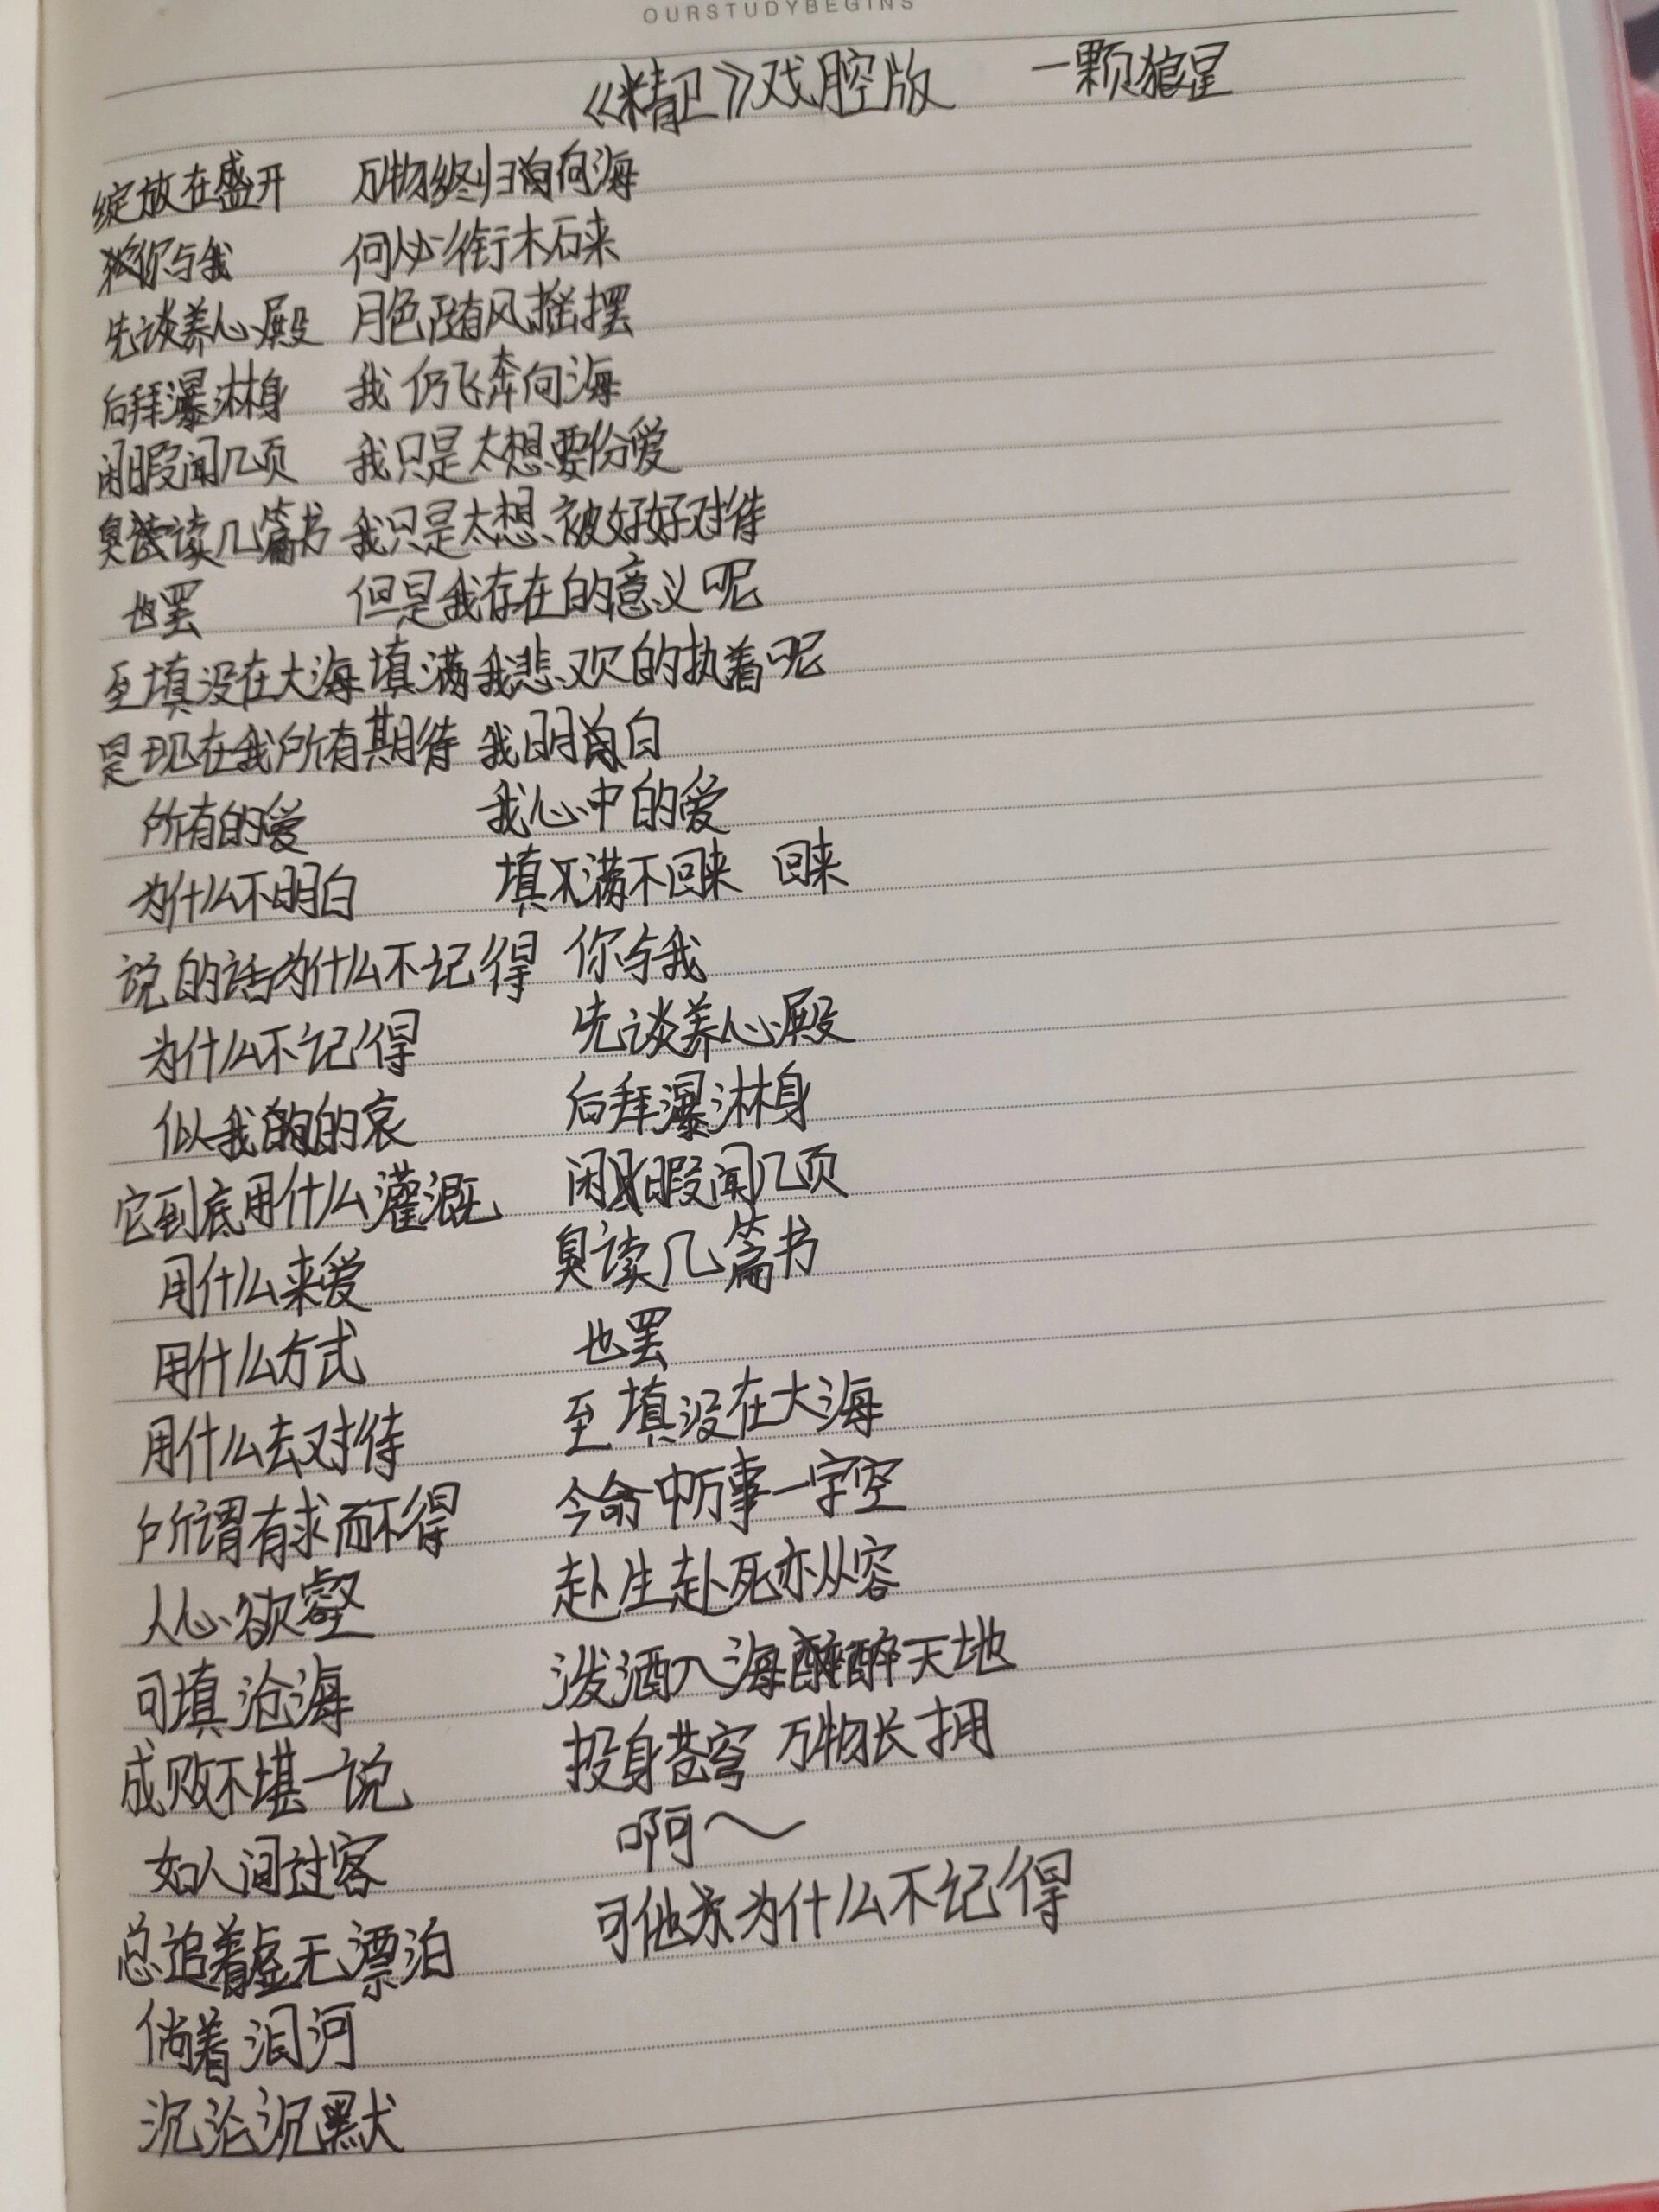 OURSTUDYBEGINS
《精卫》戏腔版 一颗狼星
绽放在盛开 万物终归向海
你与我 何必衔木石来
先谈养心殿 月色随风摇摆
后拜瀑淋身 我仍飞奔向海
闲暇闻几页 我只是太想要份爱
臭读几篇书 我只是太想被好好对待
也罢 但是我存在的意义呢
至填没在大海 填满我悲欢的执着呢
是现在我所有期待 我明白
所有的爱 我心中的爱
为什么不明白 填不满不回来 回来
说的话为什么不记得 你与我
为什么不记得 先谈养心殿
似我的哀 后拜瀑淋身
它到底用什么灌溉 闲暇闻几页
用什么来爱 臭读几篇书
用什么方式 也罢
用什么去对待 至填没在大海
所谓有求而不得 今命中万事一字空
人心欲壑 赴生赴死亦从容
可填沧海 泼酒入海醉天地
成败不堪一说 投身苍穹 万物长拥
如人间过客 啊～
总追着虚无漂泊 可他亦为什么不记得
倘着泪河
沉沦沉默